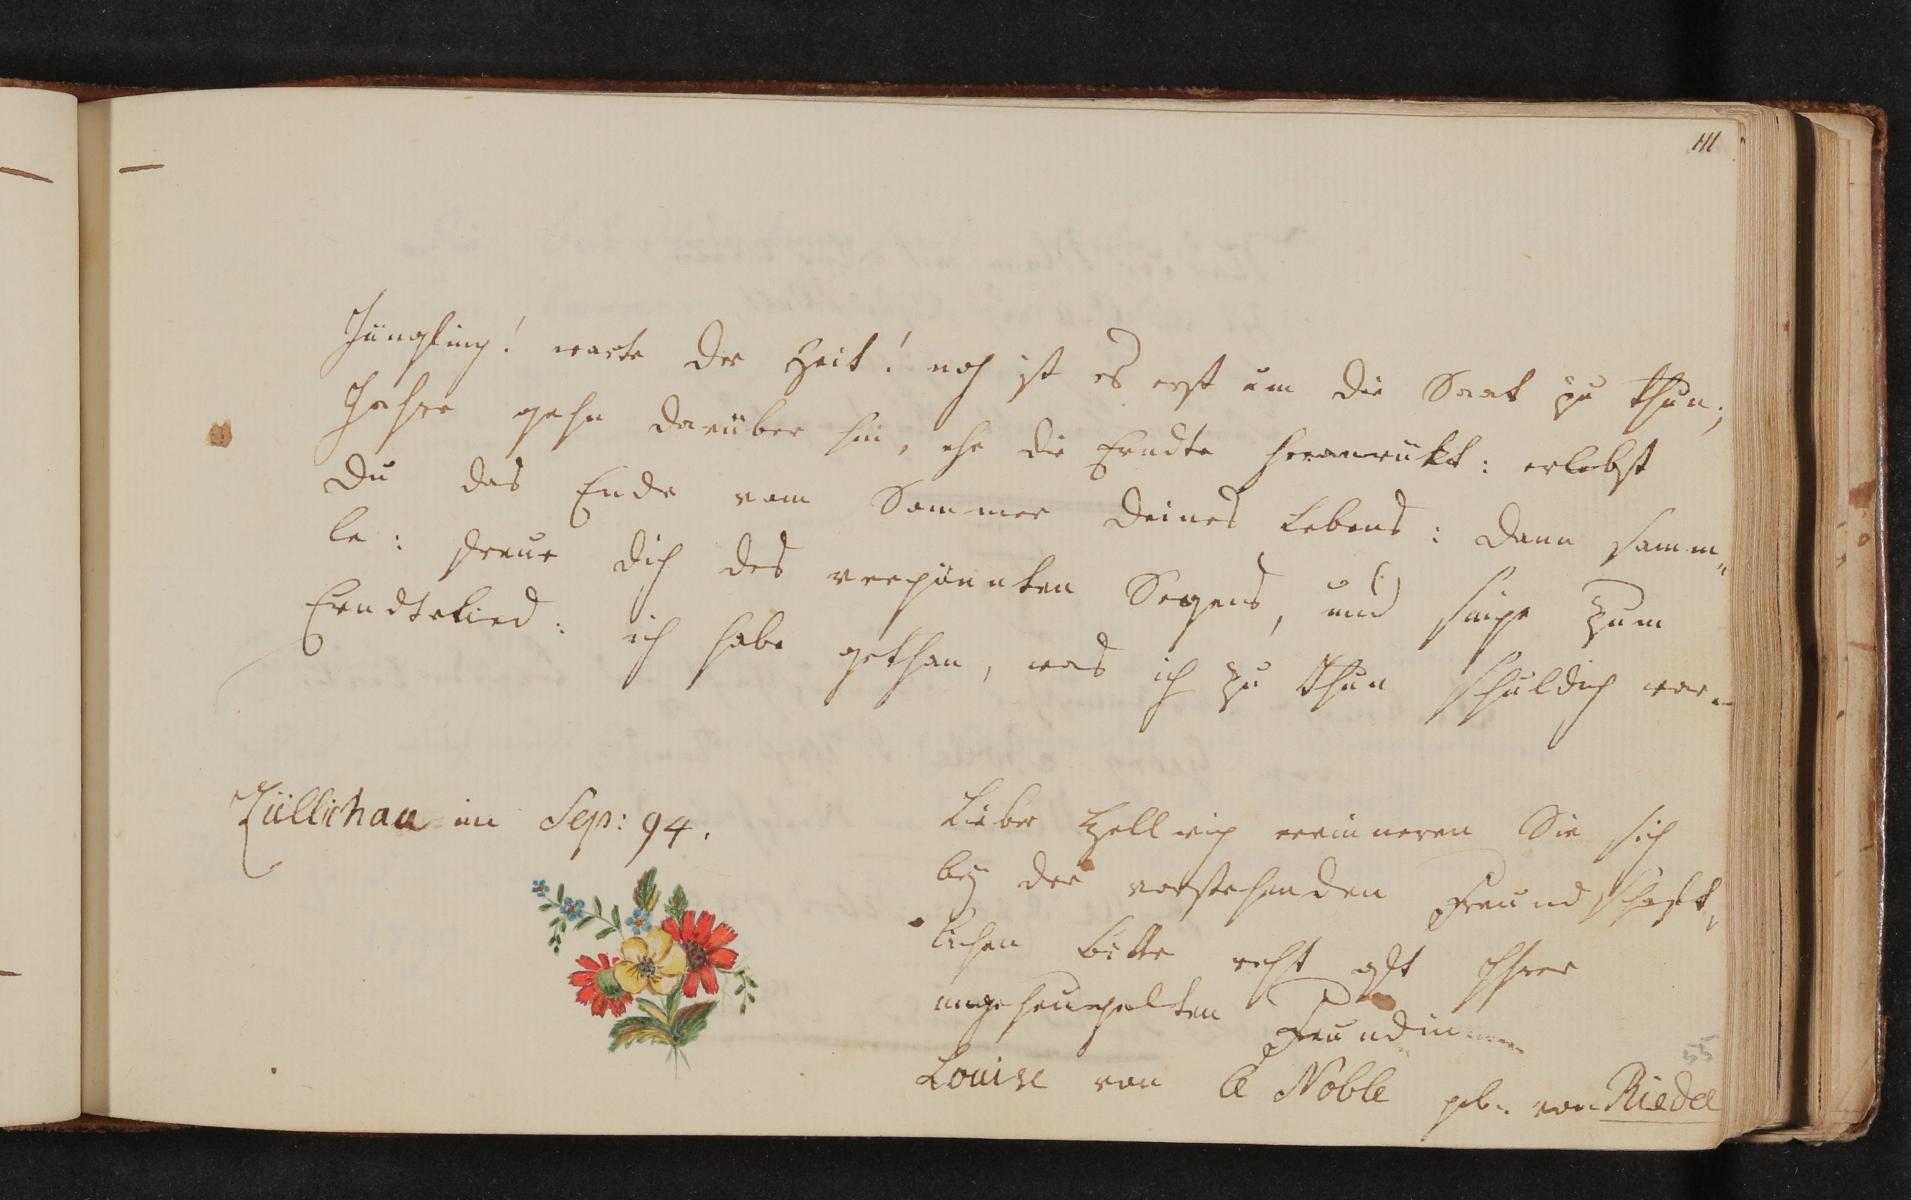 111
Jüngling! warte der Zeit! noch ist es erst um die Saat zu thun;
Jahre gehn darüber hin, ehe die Erndte heranrükt: erlebst
Du das Ende vom Sommer Deines Lebens: Dann samm„
le: freue Dich des vergönnten Segens, und singe zum
Erndtelied: ich habe gethan, was ich zu thun schuldich war.
Züllichau im Sep: 94.
Lieber Hellwig errinneren Sie sich
bey der vorstehenden Freundschaft„
lichen bitte recht oft Ihrer
ungeheuchelten Freundin
Louise von le Noble geb. von Riedel
55